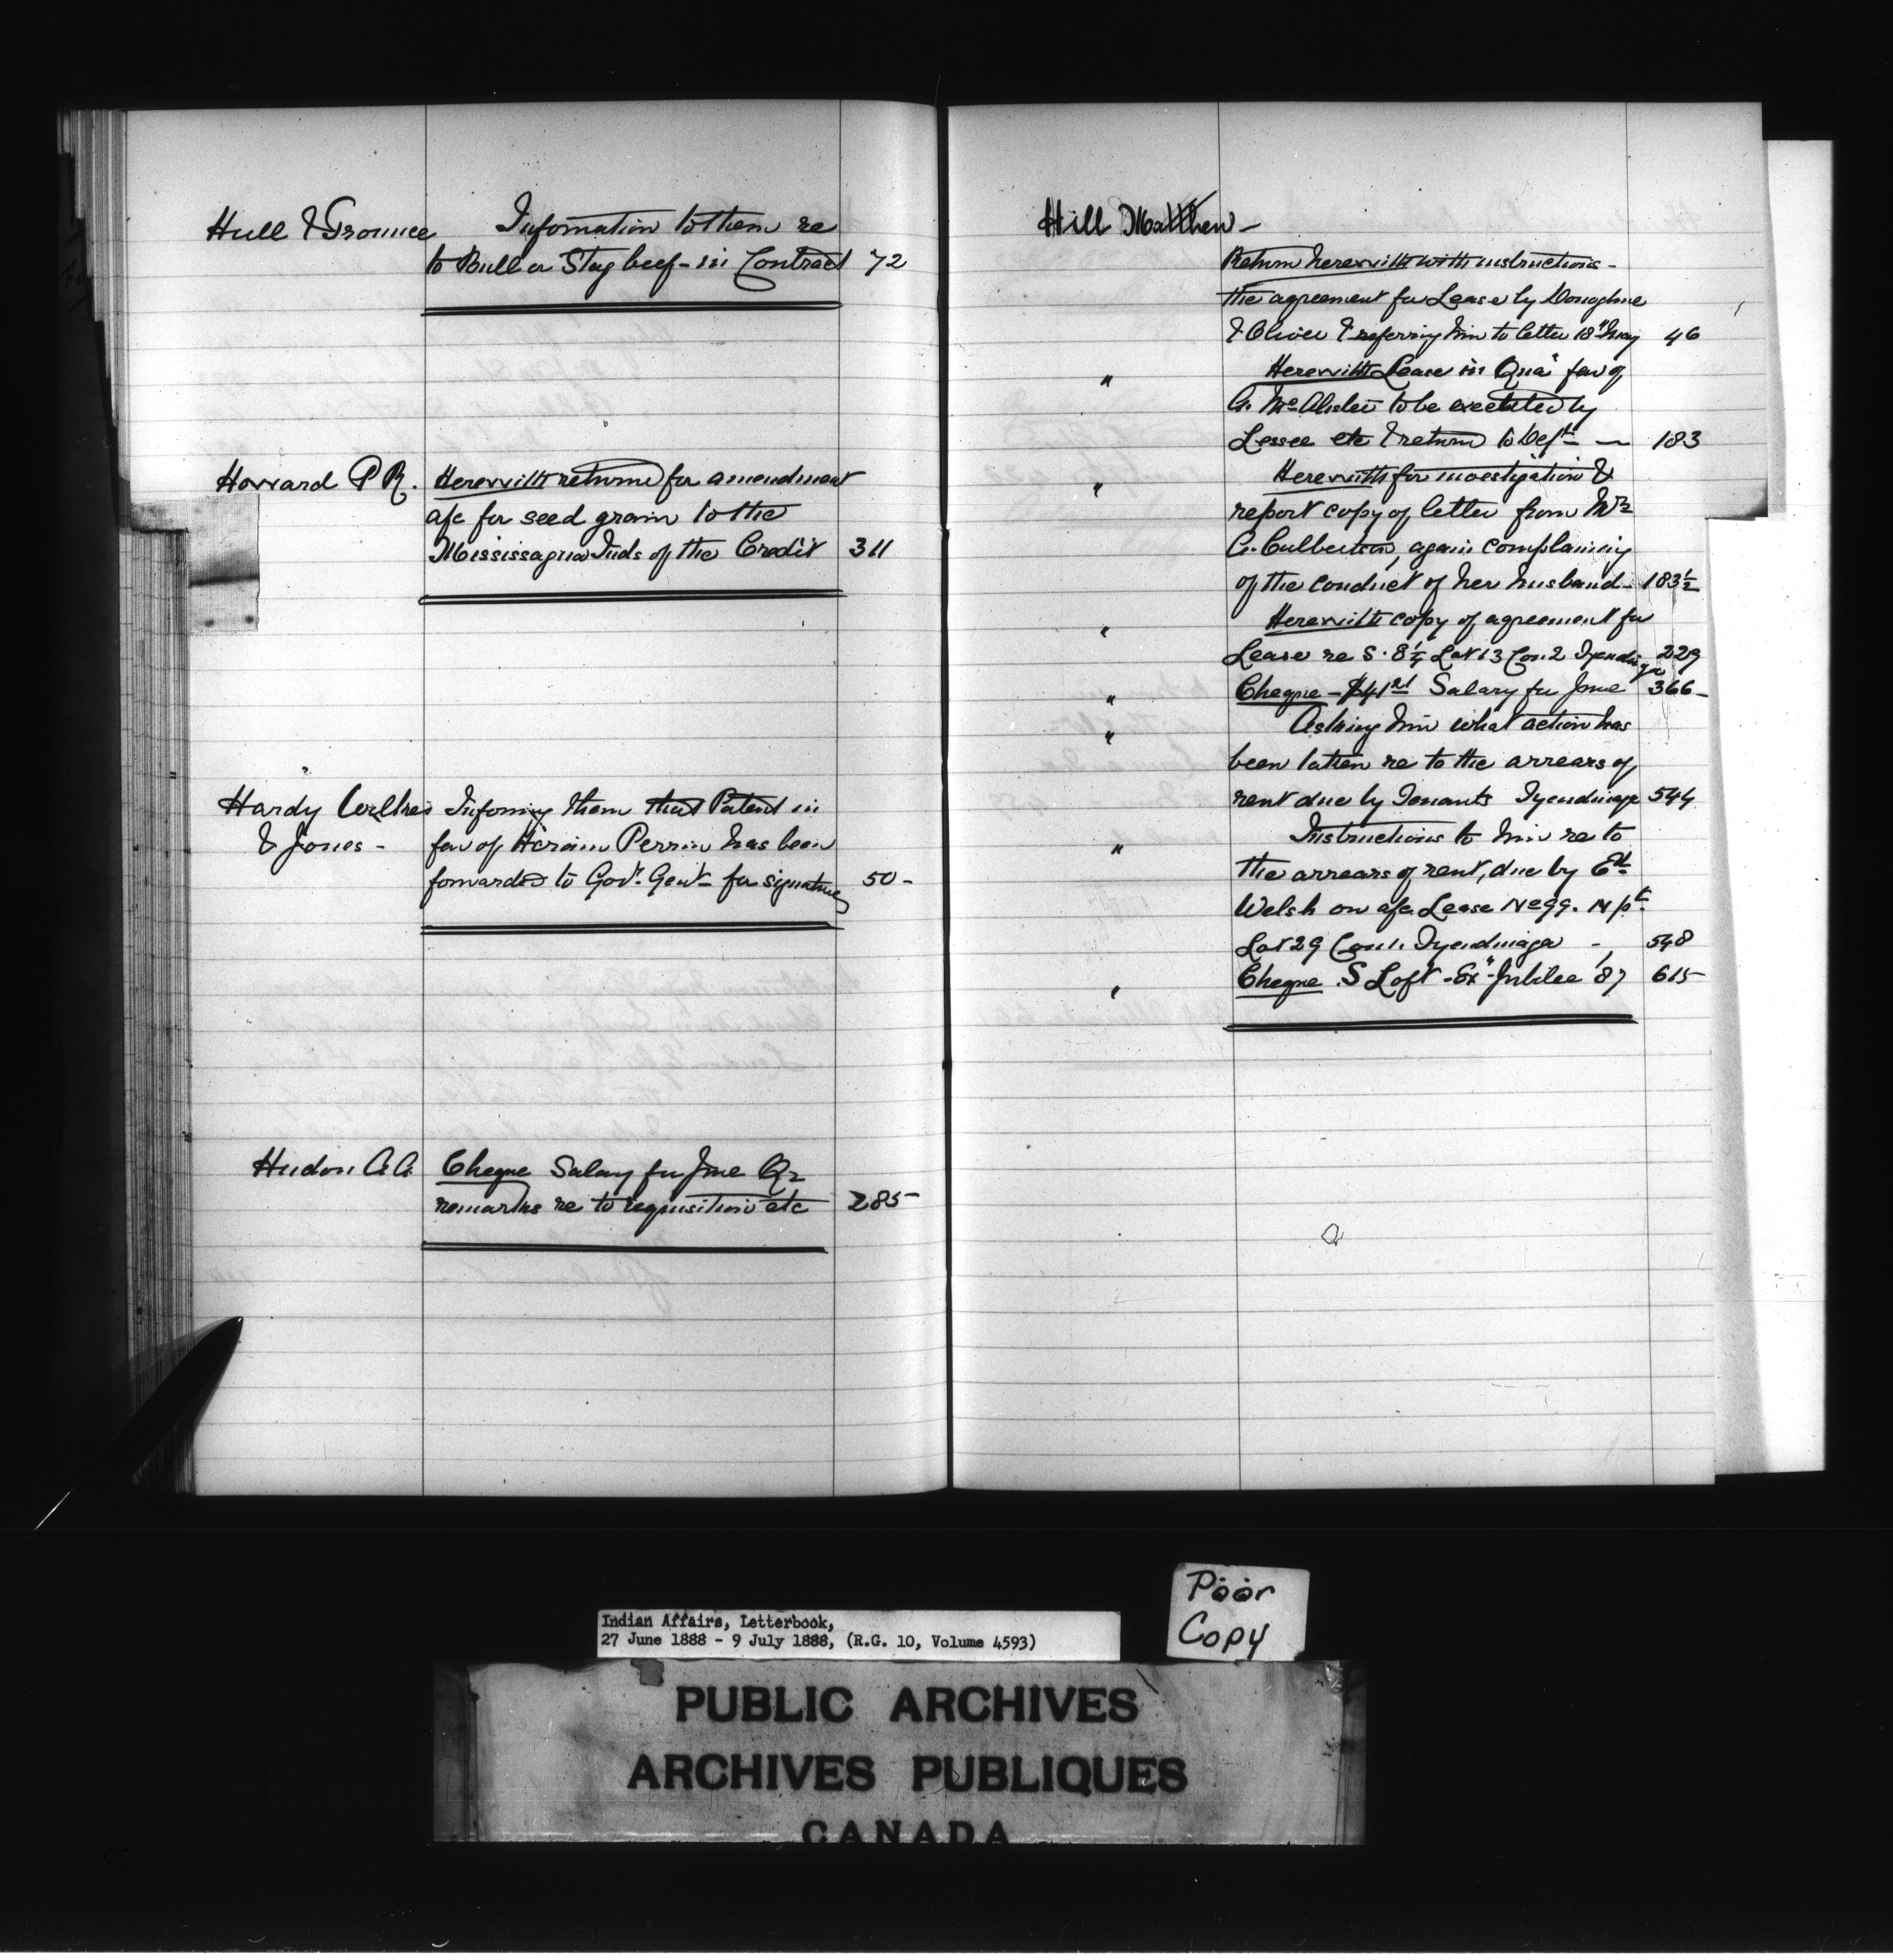 Hull & Grounce Information to them re
to Bull or Stag beef - in Contract 72
Howard P R. Herewith returned for amendment
a/c for seed grain to the
Mississagua Inds of the Credit 311
Hardy Wilkes Informing them that Patent in
& Jones - fav of Hiram Perrin has been
forwarded to Gov. Genl. for signature 50 -
Hudon A. A. Cheque Salary for June Qr
remarks re to requisition etc 285
Hill Matthew -
Return herewith with instructions -
the agreement for Lease by Donoghue
& Oliver & referring him to letter 18" May 46
" Herewith Lease in Qua' fav of
A. McAlister to be executed by
Lessee etc & return to Dept - 183
" Herewith for investigation &
report copy of letter from Mrs
A. Culbertson, again complaining
of the conduct of her husband - 183½
" Herewith copy of agreement for
Lease re S. 8¼ Lot 13 Con. 2 Tyendinaga 229
" Cheque - $41 21 Salary for June 366 -
" Asking him what action has
been taken re to the arrears of
rent due by Tenants Tyendinaga 544
" Instructions to him re to
the arrears of rent, due by Ed.
Welsh on a/c Lease No 99. N pt.
Lot 29 Con 1. Tyendinaga - 548
" Cheque S Loft - Ex" Jubilee '87 615
Poor
Copy
Indian Affairs, Letterbook,
27 June 1888 - 9 July 1888, (R.G. 10, Volume 4593)
PUBLIC ARCHIVES
ARCHIVES PUBLIQUES
CANADA